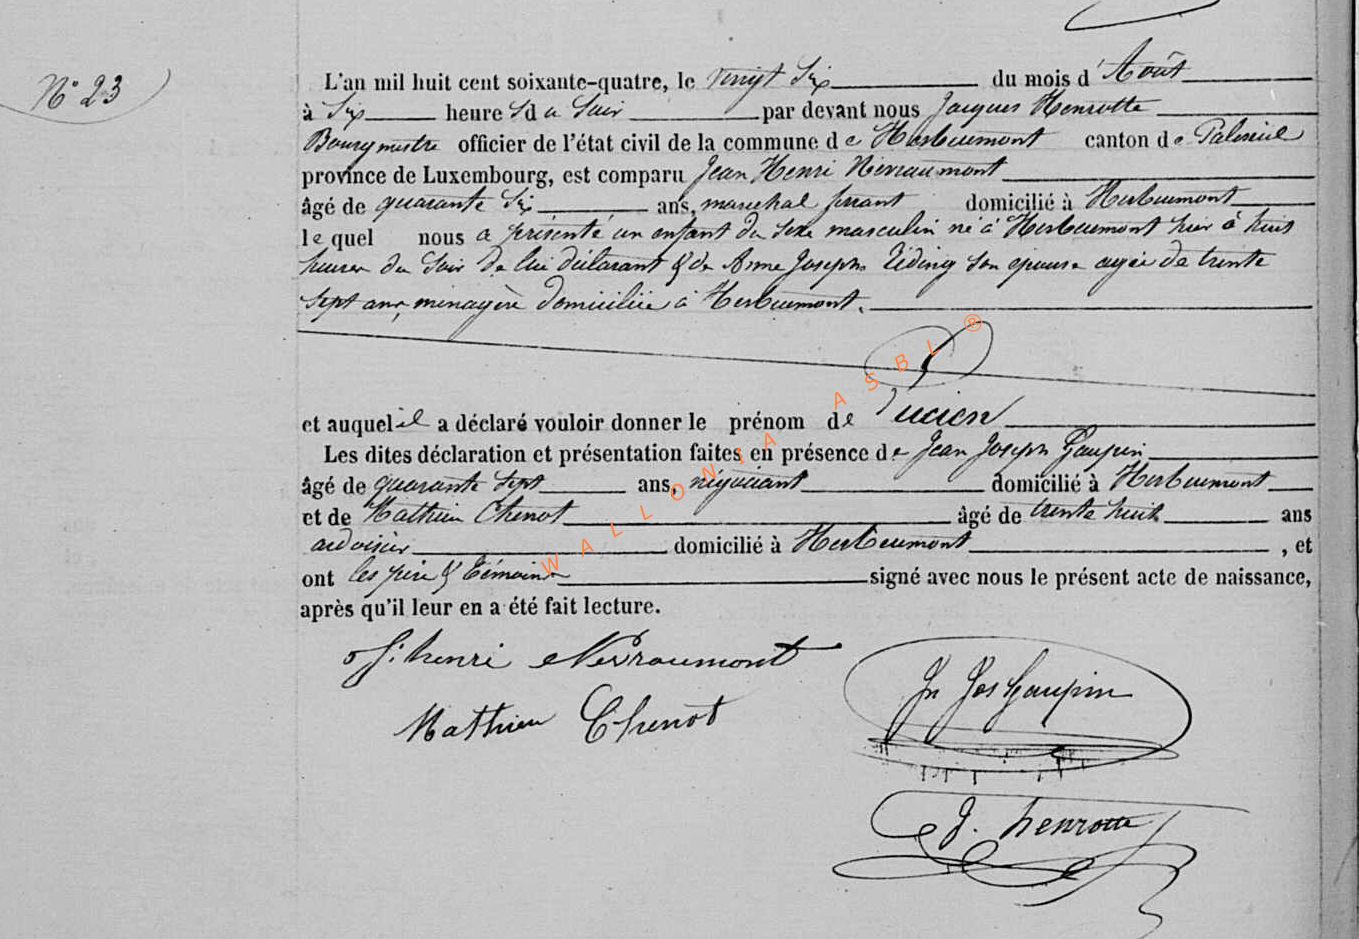 N° 23
L'an mil huit cent soixante-quatre, le vingt six du mois d' Août
à six heure s du soir par devant nous Jacques Henrotte
Bourgmestre officier de l'état civil de la commune de Herbeumont canton de Paliseul
province de Luxembourg, est comparu Jean Henri Nivraumont
âgé de quarante six ans, marechal ferrant domicilié à Herbeumont
le quel nous a présenté un enfant du sexe masculin né à Herbeumont hier à huit
heures du soir de lui déclarant & de Anne Josephe Liding son épouse agée de trente
sept ans, ménagère domiciliée à Herbeumont.
et auquel il a déclaré vouloir donner le prénom de Lucien
Les dites déclaration et présentation faites en présence de Jean Joseph Gaupin
âgé de quarante sept ans, négociant domicilié à Herbeumont
et de Mathieu Chenot âgé de trente huit ans
ardoisier domicilié à Herbeumont, et
ont les père & témoins signé avec nous le présent acte de naissance,
après qu'il leur en a été fait lecture.
J: henri Nivraumont
Jn Jos Gaupin
Mathieu Chenot
J. henrotte
WALLONIA ASBL ®